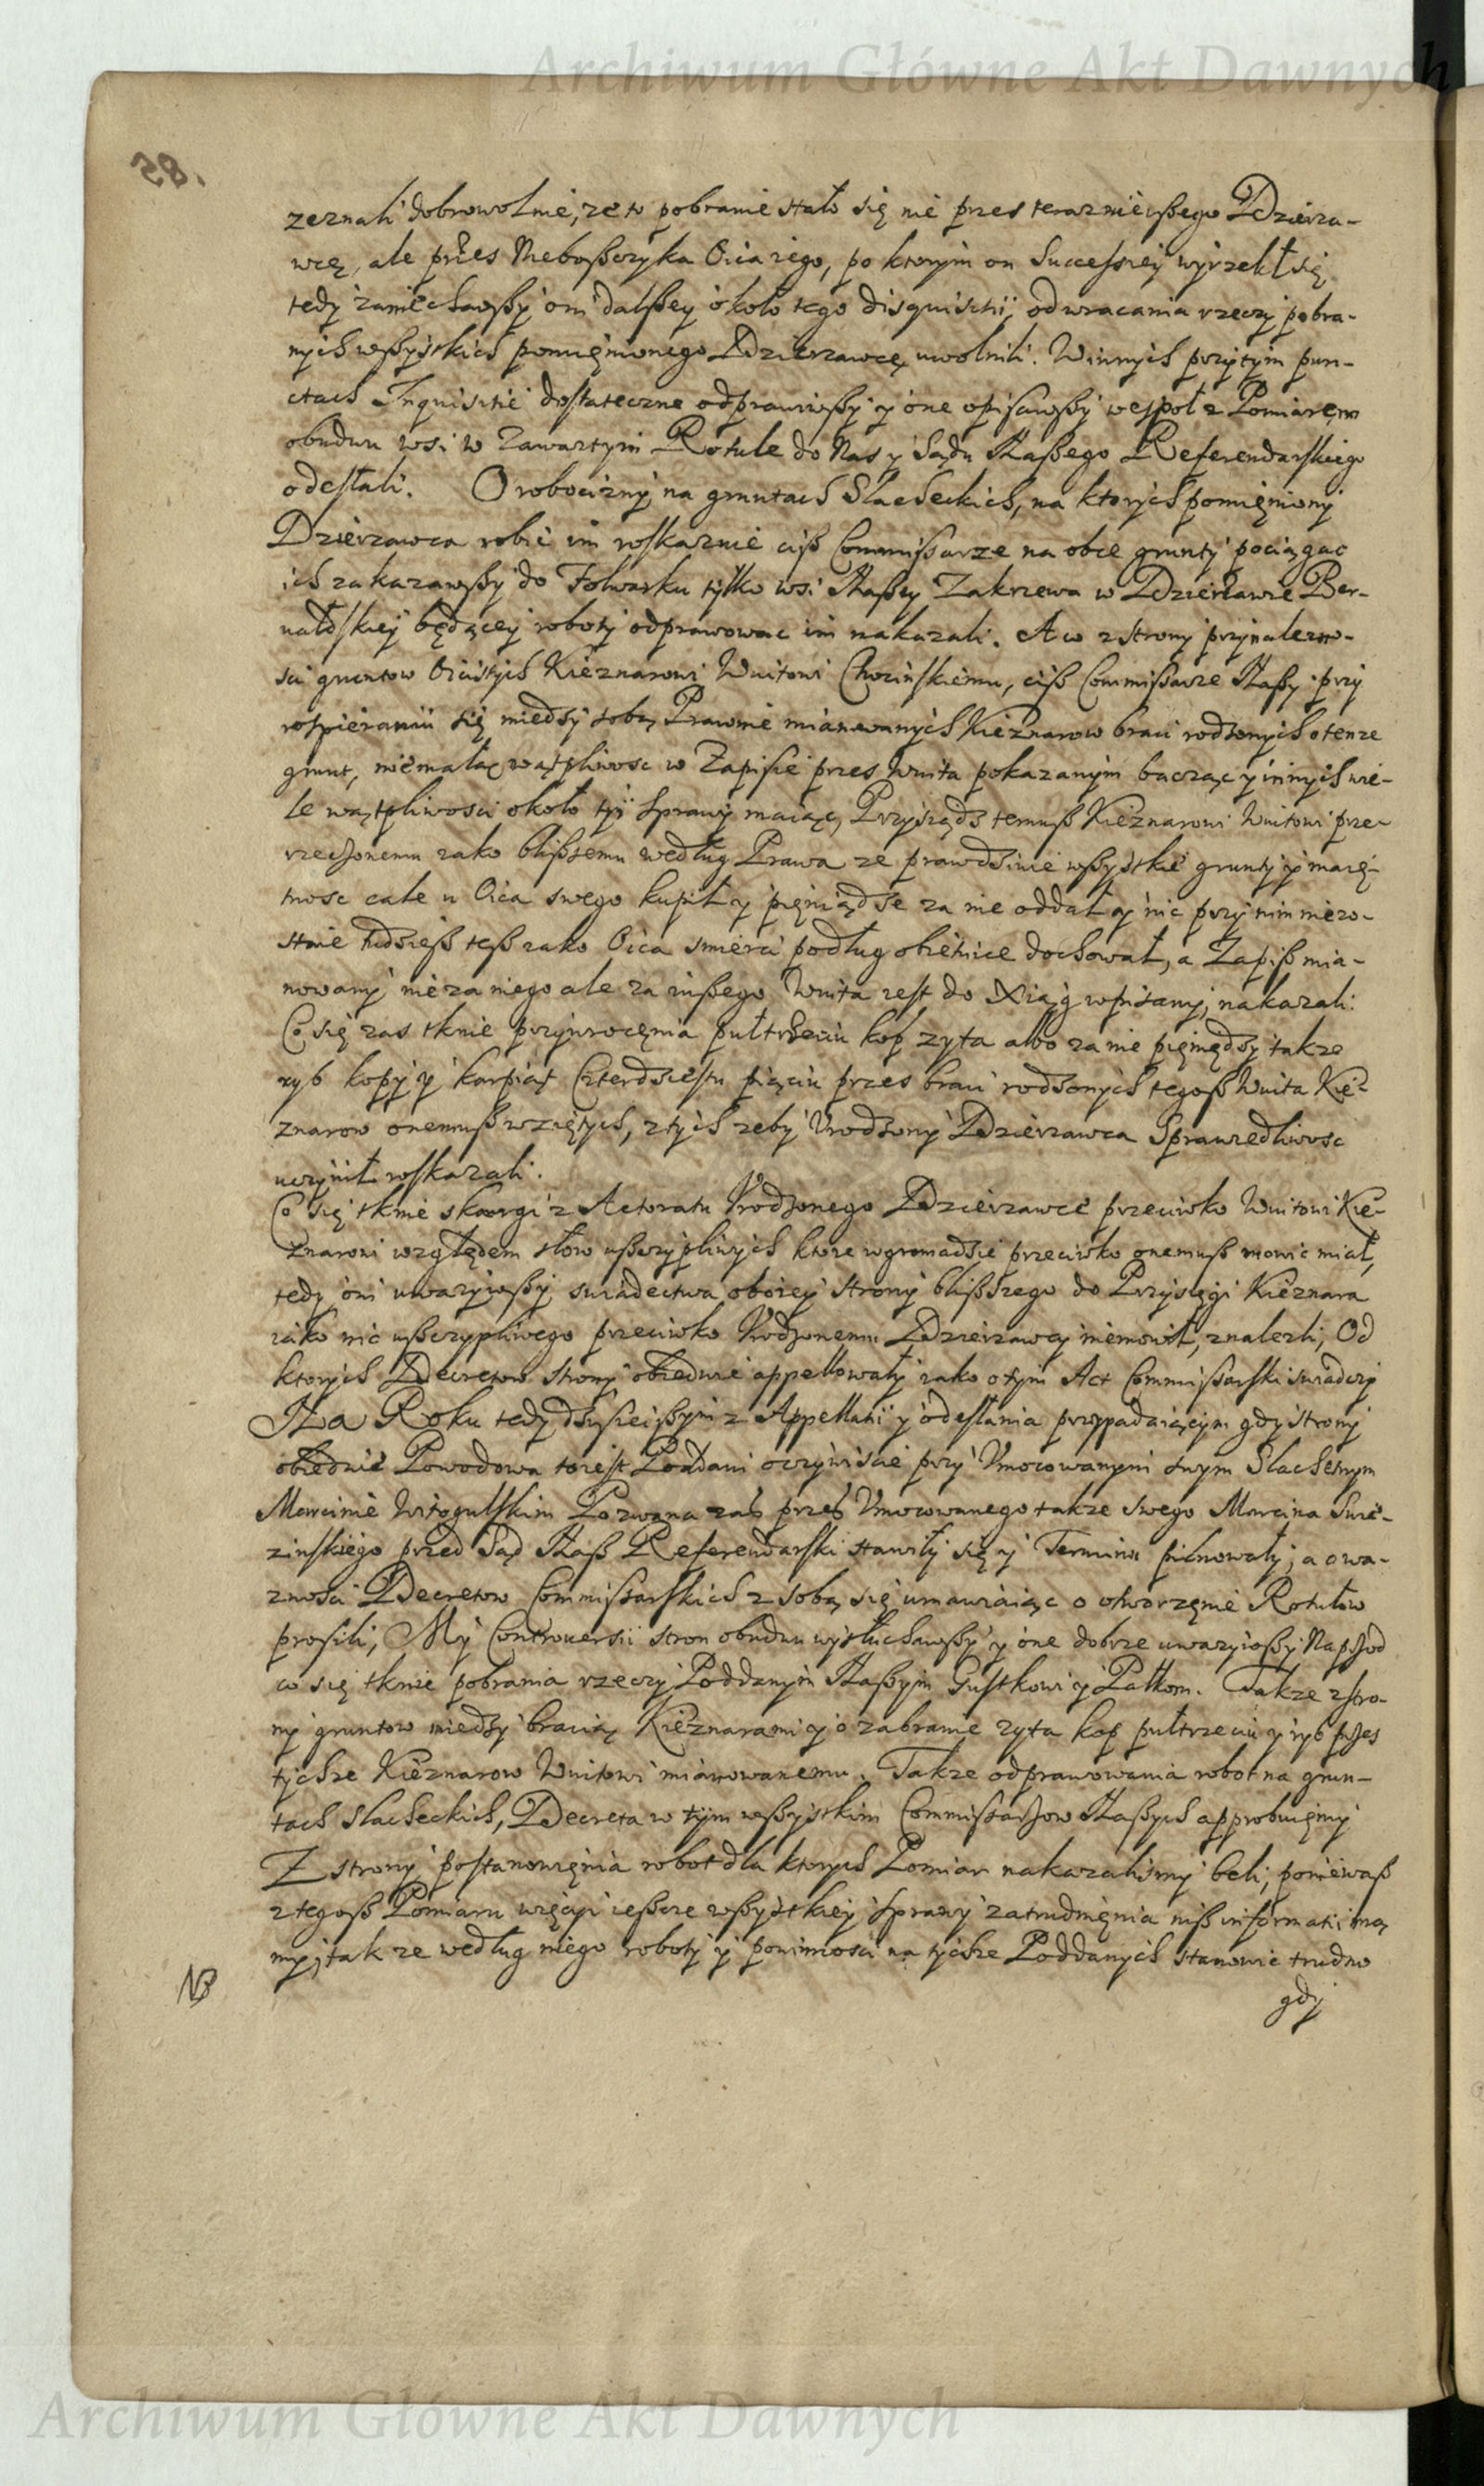 Archiwum Główne Akt Dawnych
58.
zeznali dobrowolnie, ze to pobranie stało się nie przes teraznieißego Dzierza-
wcę, ale przes Nieboßczyka Oica iego, po ktorym on Successiey wyrzekł się
tedy zaniechawßy oni dalßey około tego disquisitii, odwracania rzeczy pobra-
nych wßystkich pomięnionego Dzierzawcę uwolnili. W innych przytym pun-
ctach Inquisitie dostateczne odprawiwßy y one opisawßy wespoł z Pomiarem
obudwu wsi w Zawartym Rotule do Nas y Sądu Naßego Referendarskiego
odesłali. O robocizny na gruntach Slacheckich, na ktorych pomięniony
Dzierzawca robić im roskazuie ciß Commissarze na obce grunty pociągac
ich zakazawßy do Folwarku tylko wsi Naßey Zakrzewa w Dzierzawie Ber-
nałdskiey będącey roboty odprawowac im nakazali. A co z strony przynalezno-
sci gruntow Oicistych Kieznarowi Wuitowi Chocinskiemu, ciß Commissarze Naßy przy
rospieraniu się miedzy sobą Prawnie mianowanych Kieznarow braci rodzonych o tenze
grunt, niemałą wątpliwosc w Zapisie przes Wuita pokazanym bacząc y innych wie-
le wątpliwosci około tyi sprawy maiąc, Przysiądz temuß Kieznarowi Wuitowi prze-
rzeczonemu iako blißßemu według Prawa ze prawdziwie wßystkie grunty y maię-
tnosc całe u Oica swego kupił y pięniądze za nie oddał y nic przy nim niezo-
staie tudzieß teß iako Oica smierci podług obietnice dochował, a Zapiß mia-
nowany nie za niego ale za inßego Wuita iest do Xiąg wpisany, nakazali.
Co się zas tknie przywrocęnia pułtrzeciu kop zyta albo za nie pięniędzy takze
ryb kopy y karpiąt Czterdziestu pięciu przes braci rodzonych tegoß Wuita Kie-
znarow onemuß wziętych, z tych zeby Urodzony Dzierzawca Sprawiedliwosc
uczynił roskazali.
Co się tknie skargi z Actoratu Urodzonego Dzierzawce przeciwko Wuitowi Kie-
znarowi względem słow ußczypliwych ktore w gromadzie przeciwko onemuß mowic miał,
tedy oni uwazywßy swiadectwa oboiey strony blißszego do Przysięgi Kieznara
iako nic ußczypliwego przeciwko Urodzonemu Dzierzawcy niemowił, znalezli, Od
ktorych Decretow strony obiedwie appellowały iako o tym Act Commissarski swiadczy
Na Roku tedy dzisieißym z Appellatii y odesłania przypadaiącym gdy strony
obiedwie Powodowa toiest Poddani oczywiscie przy Umocowanym swym Slachetnym
Marcinie Witogulskim Pozwana zaß przeß Umocowanego takze swego Marcina Swie-
zinskiego przed Sąd Naß Referendarski stawiły się y Terminu pilnowały, a o wa-
znosci Decretow Commissarskich z sobą się umawiaiąc o otworzęnie Rotułow
prosili, My Controuersii stron obudwu wysłuchawßy y one dobrze uwazywßy Naprzod
co się tknie pobrania rzeczy Poddanym Naßym Gustkowi y Patkom. Takze z stro-
ny gruntow miedzy bracią Kieznarami y o zabranie zyta kop pułtrzeciu y ryb przes
tychze Kieznarow Wuitowi mianowanemu. Takze odprawowania robot na grun-
tach slacheckich, Decreta w tym wßystkim Commissarzow Naßych approbuięmy
Z strony postanowięnia robot dla ktorych Pomiar nakazalismy beli, poniewaß
z tegoß Pomiaru więcyi ießcze wßystkiey sprawy zatrudnięnia niß informatii ma-
my, tak ze według niego roboty y powinnosci na tychze Poddanych stanowic trudno
NB
gdy
Archiwum Główne Akt Dawnych